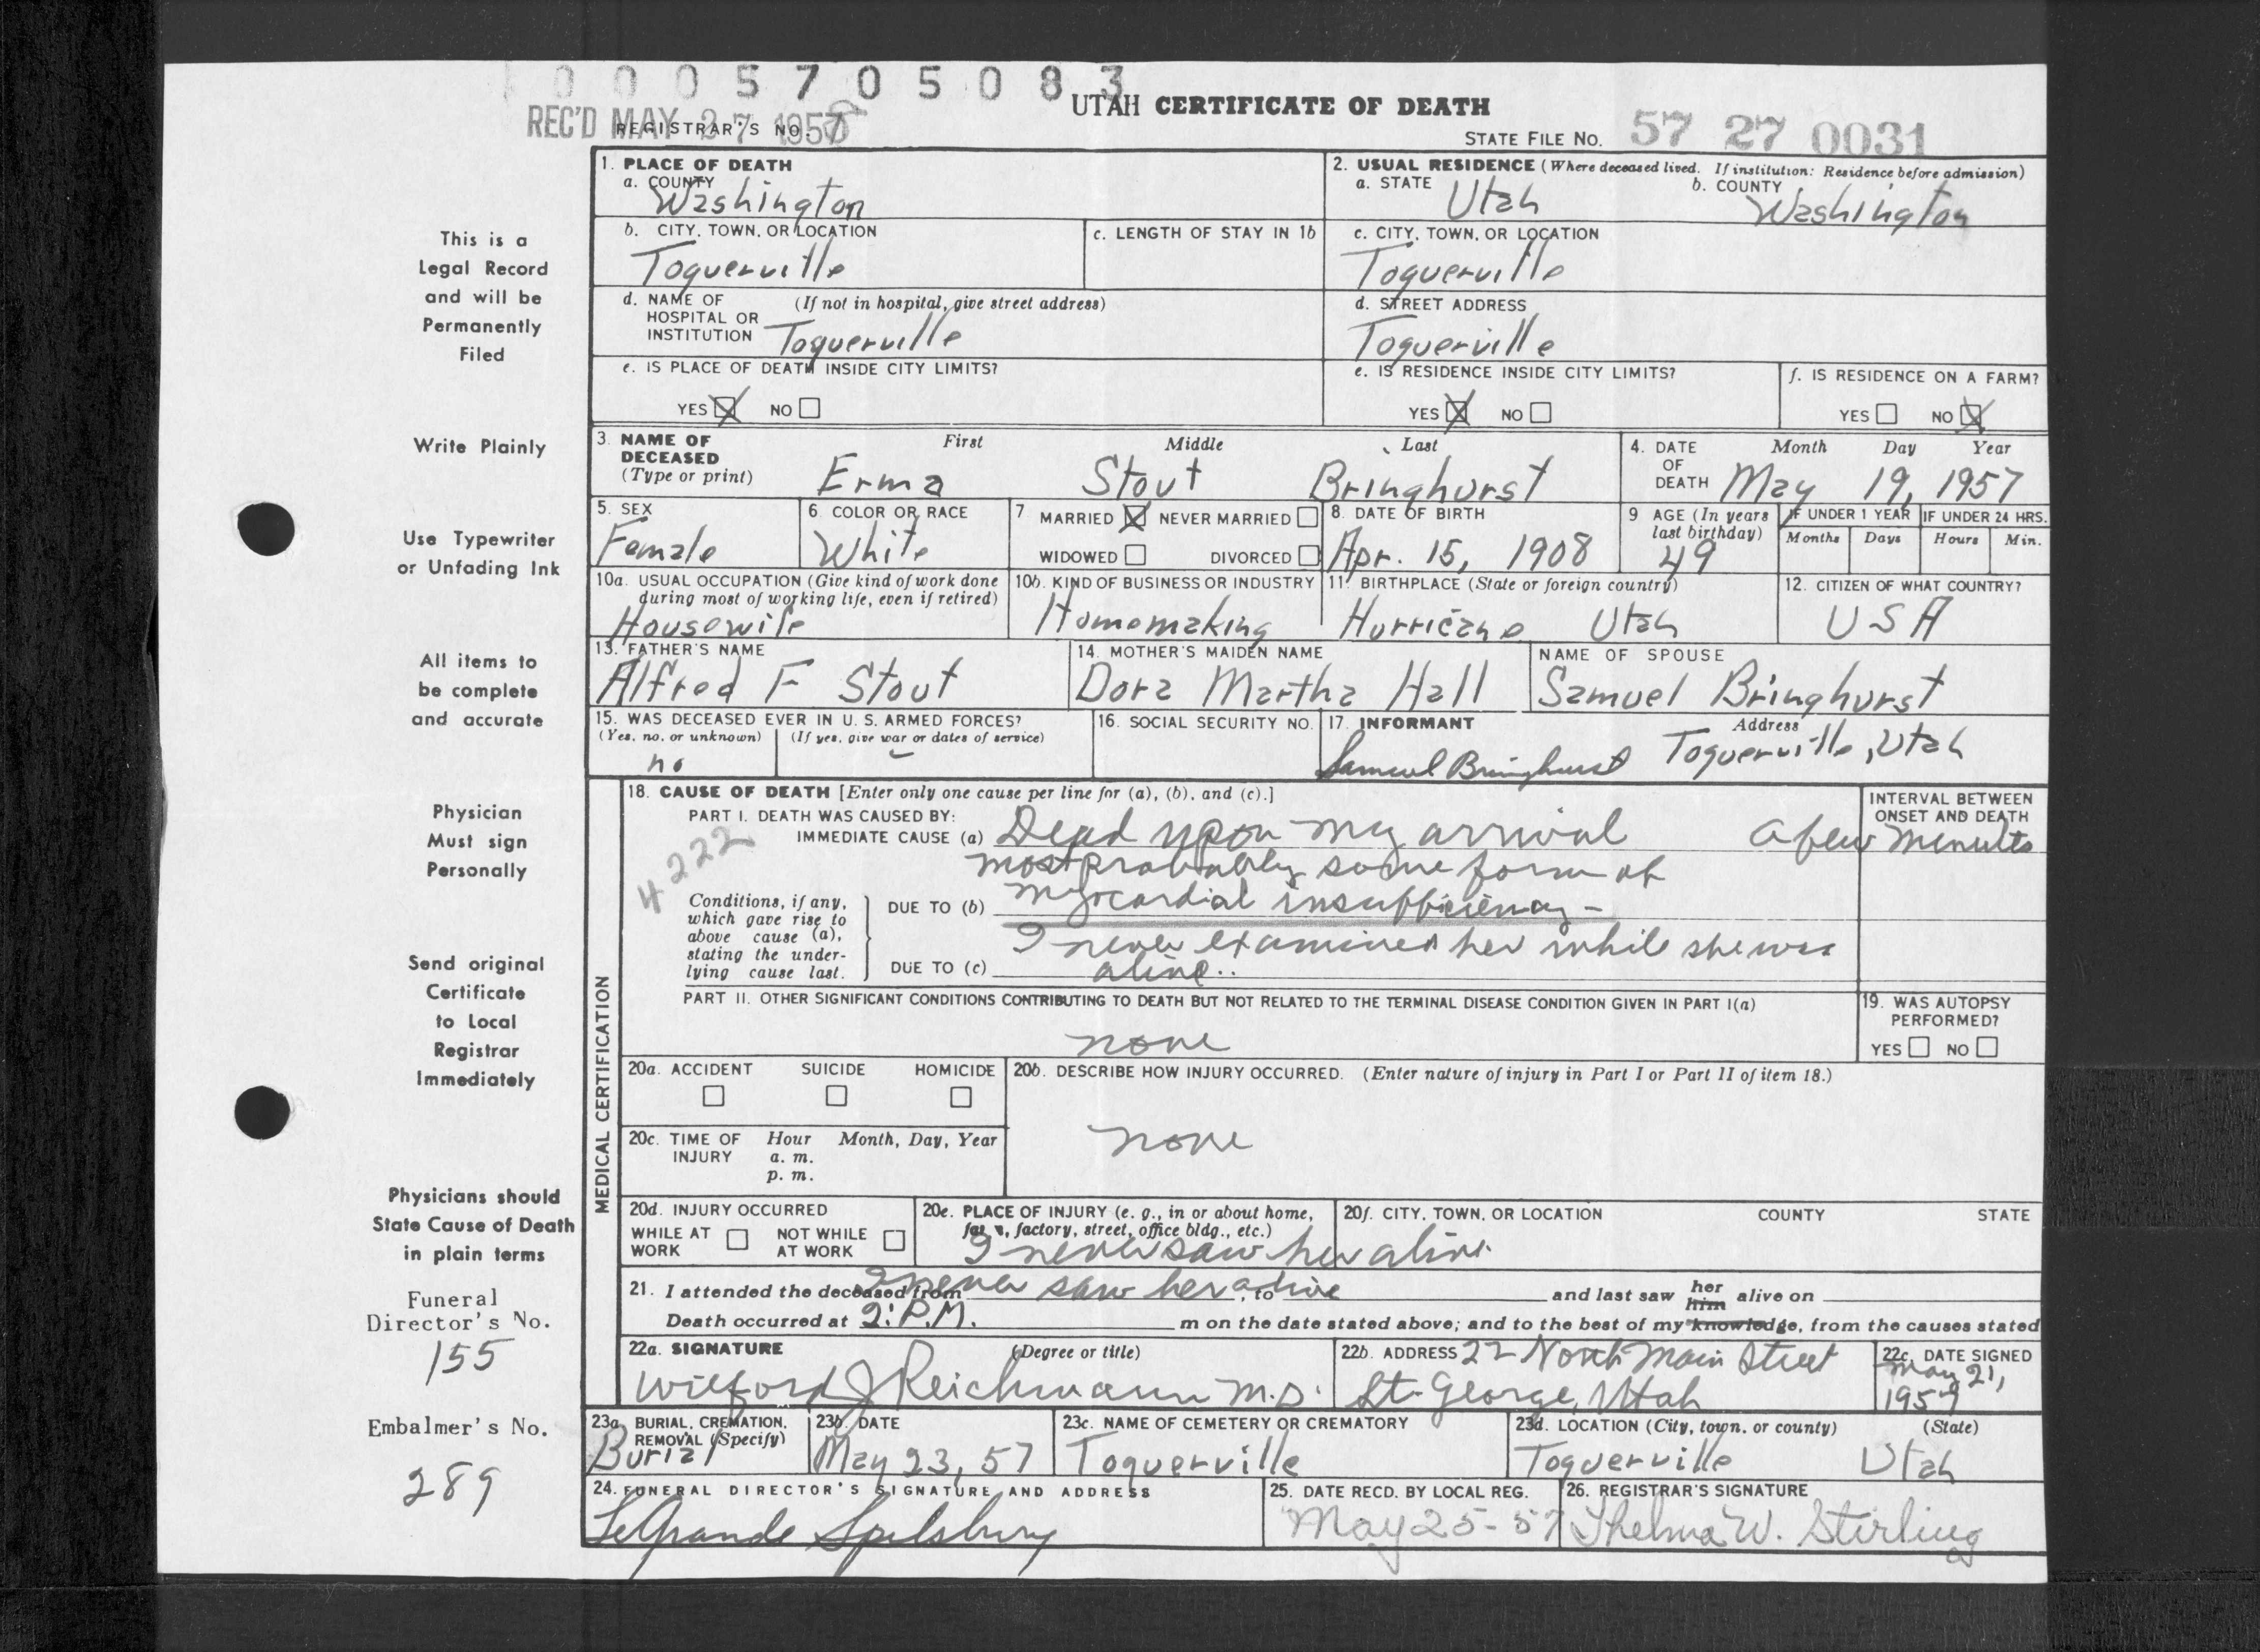 0 0 0 5 7 0 5 0 8 3
UTAH CERTIFICATE OF DEATH
REC'D MAY 27 1957
REGISTRAR'S NO.
STATE FILE NO. 57 27 0031
This is a
Legal Record
and will be
Permanently
Filed
Write Plainly
Use Typewriter
or Unfading Ink
All items to
be complete
and accurate
Physician
Must sign
Personally
Send original
Certificate
to Local
Registrar
Immediately
Physicians should
State Cause of Death
in plain terms
Funeral
Director's No.
155
Embalmer's No.
289
1. PLACE OF DEATH
a. COUNTY
Washington
2. USUAL RESIDENCE (Where deceased lived. If institution: Residence before admission)
a. STATE Utah b. COUNTY Washington
b. CITY, TOWN, OR LOCATION
Toquerville
c. LENGTH OF STAY IN 1b
c. CITY, TOWN, OR LOCATION
Toquerville
d. NAME OF (If not in hospital, give street address)
HOSPITAL OR
INSTITUTION Toquerville
d. STREET ADDRESS
Toquerville
e. IS PLACE OF DEATH INSIDE CITY LIMITS?
YES X NO
e. IS RESIDENCE INSIDE CITY LIMITS?
YES X NO
f. IS RESIDENCE ON A FARM?
YES NO X
3. NAME OF DECEASED (Type or print)
First Middle Last
Erma Stout Bringhurst
4. DATE OF DEATH
Month Day Year
May 19, 1957
5. SEX
Female
6. COLOR OR RACE
White
7 MARRIED X NEVER MARRIED
WIDOWED DIVORCED
8. DATE OF BIRTH
Apr. 15, 1908
9 AGE (In years
last birthday)
49
IF UNDER 1 YEAR IF UNDER 24 HRS.
Months Days Hours Min.
10a. USUAL OCCUPATION (Give kind of work done
during most of working life, even if retired)
Housewife
10b. KIND OF BUSINESS OR INDUSTRY
Homemaking
11. BIRTHPLACE (State or foreign country)
Hurricane Utah
12. CITIZEN OF WHAT COUNTRY?
USA
13. FATHER'S NAME
Alfred F Stout
14. MOTHER'S MAIDEN NAME
Dora Martha Hall
NAME OF SPOUSE
Samuel Bringhurst
15. WAS DECEASED EVER IN U. S. ARMED FORCES?
(Yes, no, or unknown) (If yes, give war or dates of service)
no -
16. SOCIAL SECURITY NO.
17. INFORMANT Address
Samuel Bringhurst Toquerville, Utah
MEDICAL CERTIFICATION
18. CAUSE OF DEATH [Enter only one cause per line for (a), (b), and (c).]
PART I. DEATH WAS CAUSED BY:
IMMEDIATE CAUSE (a) Dead upon my arrival
most probably some form of
4222
Conditions, if any,
which gave rise to
above cause (a),
stating the under-
lying cause last.
DUE TO (b) myocardial insufficiency -
I never examined her while she was
DUE TO (c) alive..
INTERVAL BETWEEN
ONSET AND DEATH
a few minutes
PART II. OTHER SIGNIFICANT CONDITIONS CONTRIBUTING TO DEATH BUT NOT RELATED TO THE TERMINAL DISEASE CONDITION GIVEN IN PART I(a)
none
19. WAS AUTOPSY
PERFORMED?
YES NO
20a. ACCIDENT SUICIDE HOMICIDE
20b. DESCRIBE HOW INJURY OCCURRED. (Enter nature of injury in Part I or Part II of item 18.)
none
20c. TIME OF INJURY
Hour Month, Day, Year
a. m.
p. m.
20d. INJURY OCCURRED
WHILE AT WORK NOT WHILE AT WORK
20e. PLACE OF INJURY (e. g., in or about home,
farm, factory, street, office bldg., etc.)
I never saw her alive.
20f. CITY, TOWN, OR LOCATION COUNTY STATE
21. I attended the deceased from I never saw her alive, to and last saw her him alive on
Death occurred at 2: P.M. m on the date stated above; and to the best of my knowledge, from the causes stated
22a. SIGNATURE (Degree or title)
Wilford J Reichmann M.D.
22b. ADDRESS 22 North Main Street
St. George, Utah
22c. DATE SIGNED
May 21,
1957
23a. BURIAL, CREMATION,
REMOVAL (Specify)
Burial
23b. DATE
May 23, 57
23c. NAME OF CEMETERY OR CREMATORY
Toquerville
23d. LOCATION (City, town, or county) (State)
Toquerville Utah
24. FUNERAL DIRECTOR'S SIGNATURE AND ADDRESS
LeGrande Spilsbury
25. DATE RECD. BY LOCAL REG.
May 25-57
26. REGISTRAR'S SIGNATURE
Thelma W. Stirling